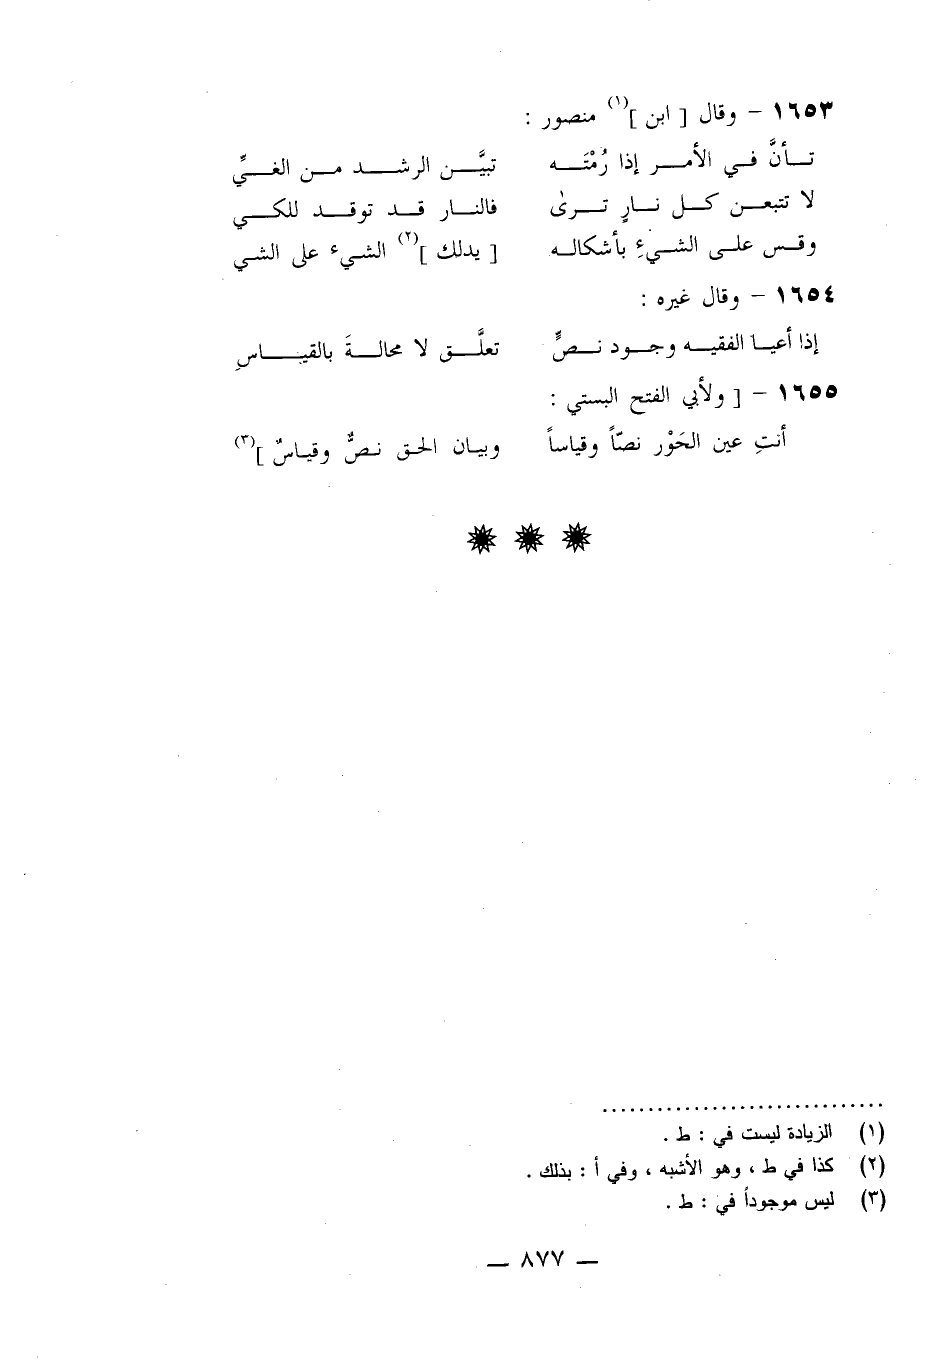 ١٦٥٣ – وقال [ ابن ](١) منصور :
تـأنَّ فـي الأمـر إذا رُمْتَـه تبيَّـن الرشـد مـن الغـيِّ
لا تتبعـن كـل نـارٍ تـرىٰ فالنـار قـد توقـد للكـي
وقـس علـى الشـيءِ بأشكالـه [ يدلك ](٢) الشيء على الشي
١٦٥٤ – وقال غيره :
إذا أعيـا الفقيـه وجـود نـصٍّ تعلَّـق لا محالـةَ بالقيـاسِ
١٦٥٥ – [ ولأبي الفتح البستي :
أنتِ عين الحَوْر نصّاً وقياساً وبيـان الحـق نـصٌّ وقيـاسٌ ](٣)
(١) الزيادة ليست في : ط .
(٢) كذا في ط ، وهو الأشبه ، وفي أ : بذلك .
(٣) ليس موجوداً في : ط .
— ٨٧٧ —